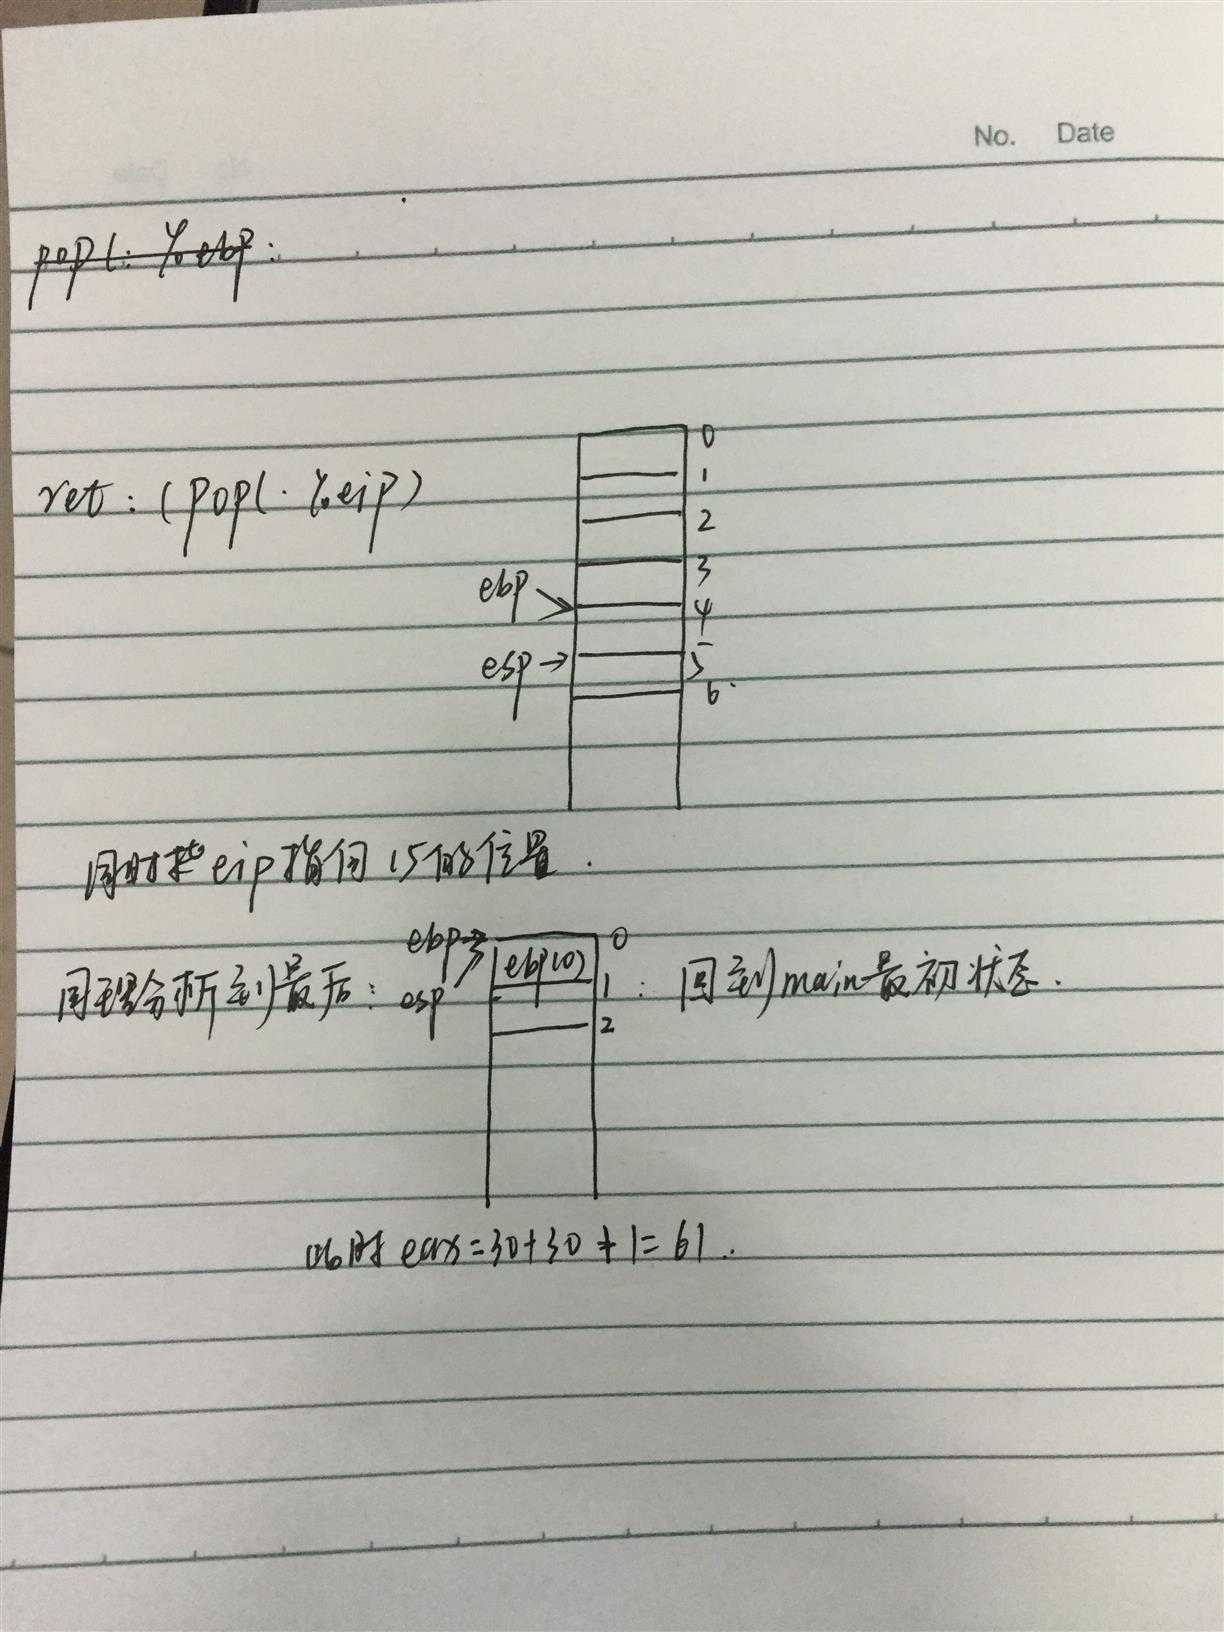 No. Date
popl: %ebp:
ret: (popl. %eip)
0
1
2
3
ebp 4
esp 5
6
同时把eip指向15的位置.
ebp 0
同理分析到最后: esp ebp(0) 1 : 回到main最初状态.
2
此时 eax=30+30+1=61.